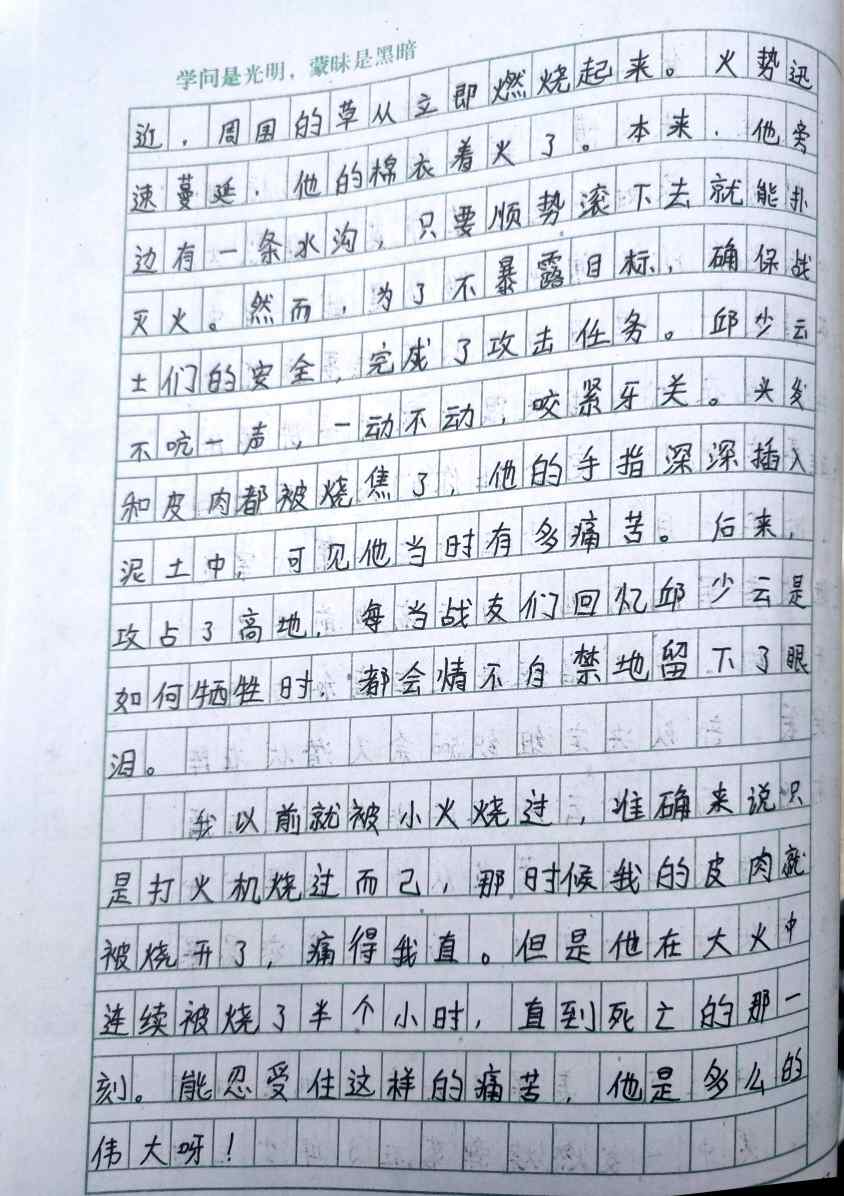 学问是光明，蒙昧是黑暗
近，周围的草从立即燃烧起来。火势迅
速蔓延，他的棉衣着火了。本来，他旁
边有一条水沟，只要顺势滚下去就能扑
灭火。然而，为了不暴露目标，确保战
士们的安全，完成了攻击任务。邱少云
不吭一声，一动不动，咬紧牙关。头发
和皮肉都被烧焦了，他的手指深深插入
泥土中，可见他当时有多痛苦。后来，
攻占了高地，每当战友们回忆邱少云是
如何牺牲时，都会情不自禁地留下了眼
泪。
我以前就被小火烧过，准确来说只
是打火机烧过而己，那时候我的皮肉就
被烧开了，痛得我直。但是他在大火中
连续被烧了半个小时，直到死亡的那一
刻。能忍受住这样的痛苦，他是多么的
伟大呀！